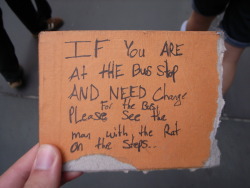 IF You ARE
At tHE Bus Stop
AND NEED Change
For the Bus,
Please See the
man with the Rat
on the Steps..